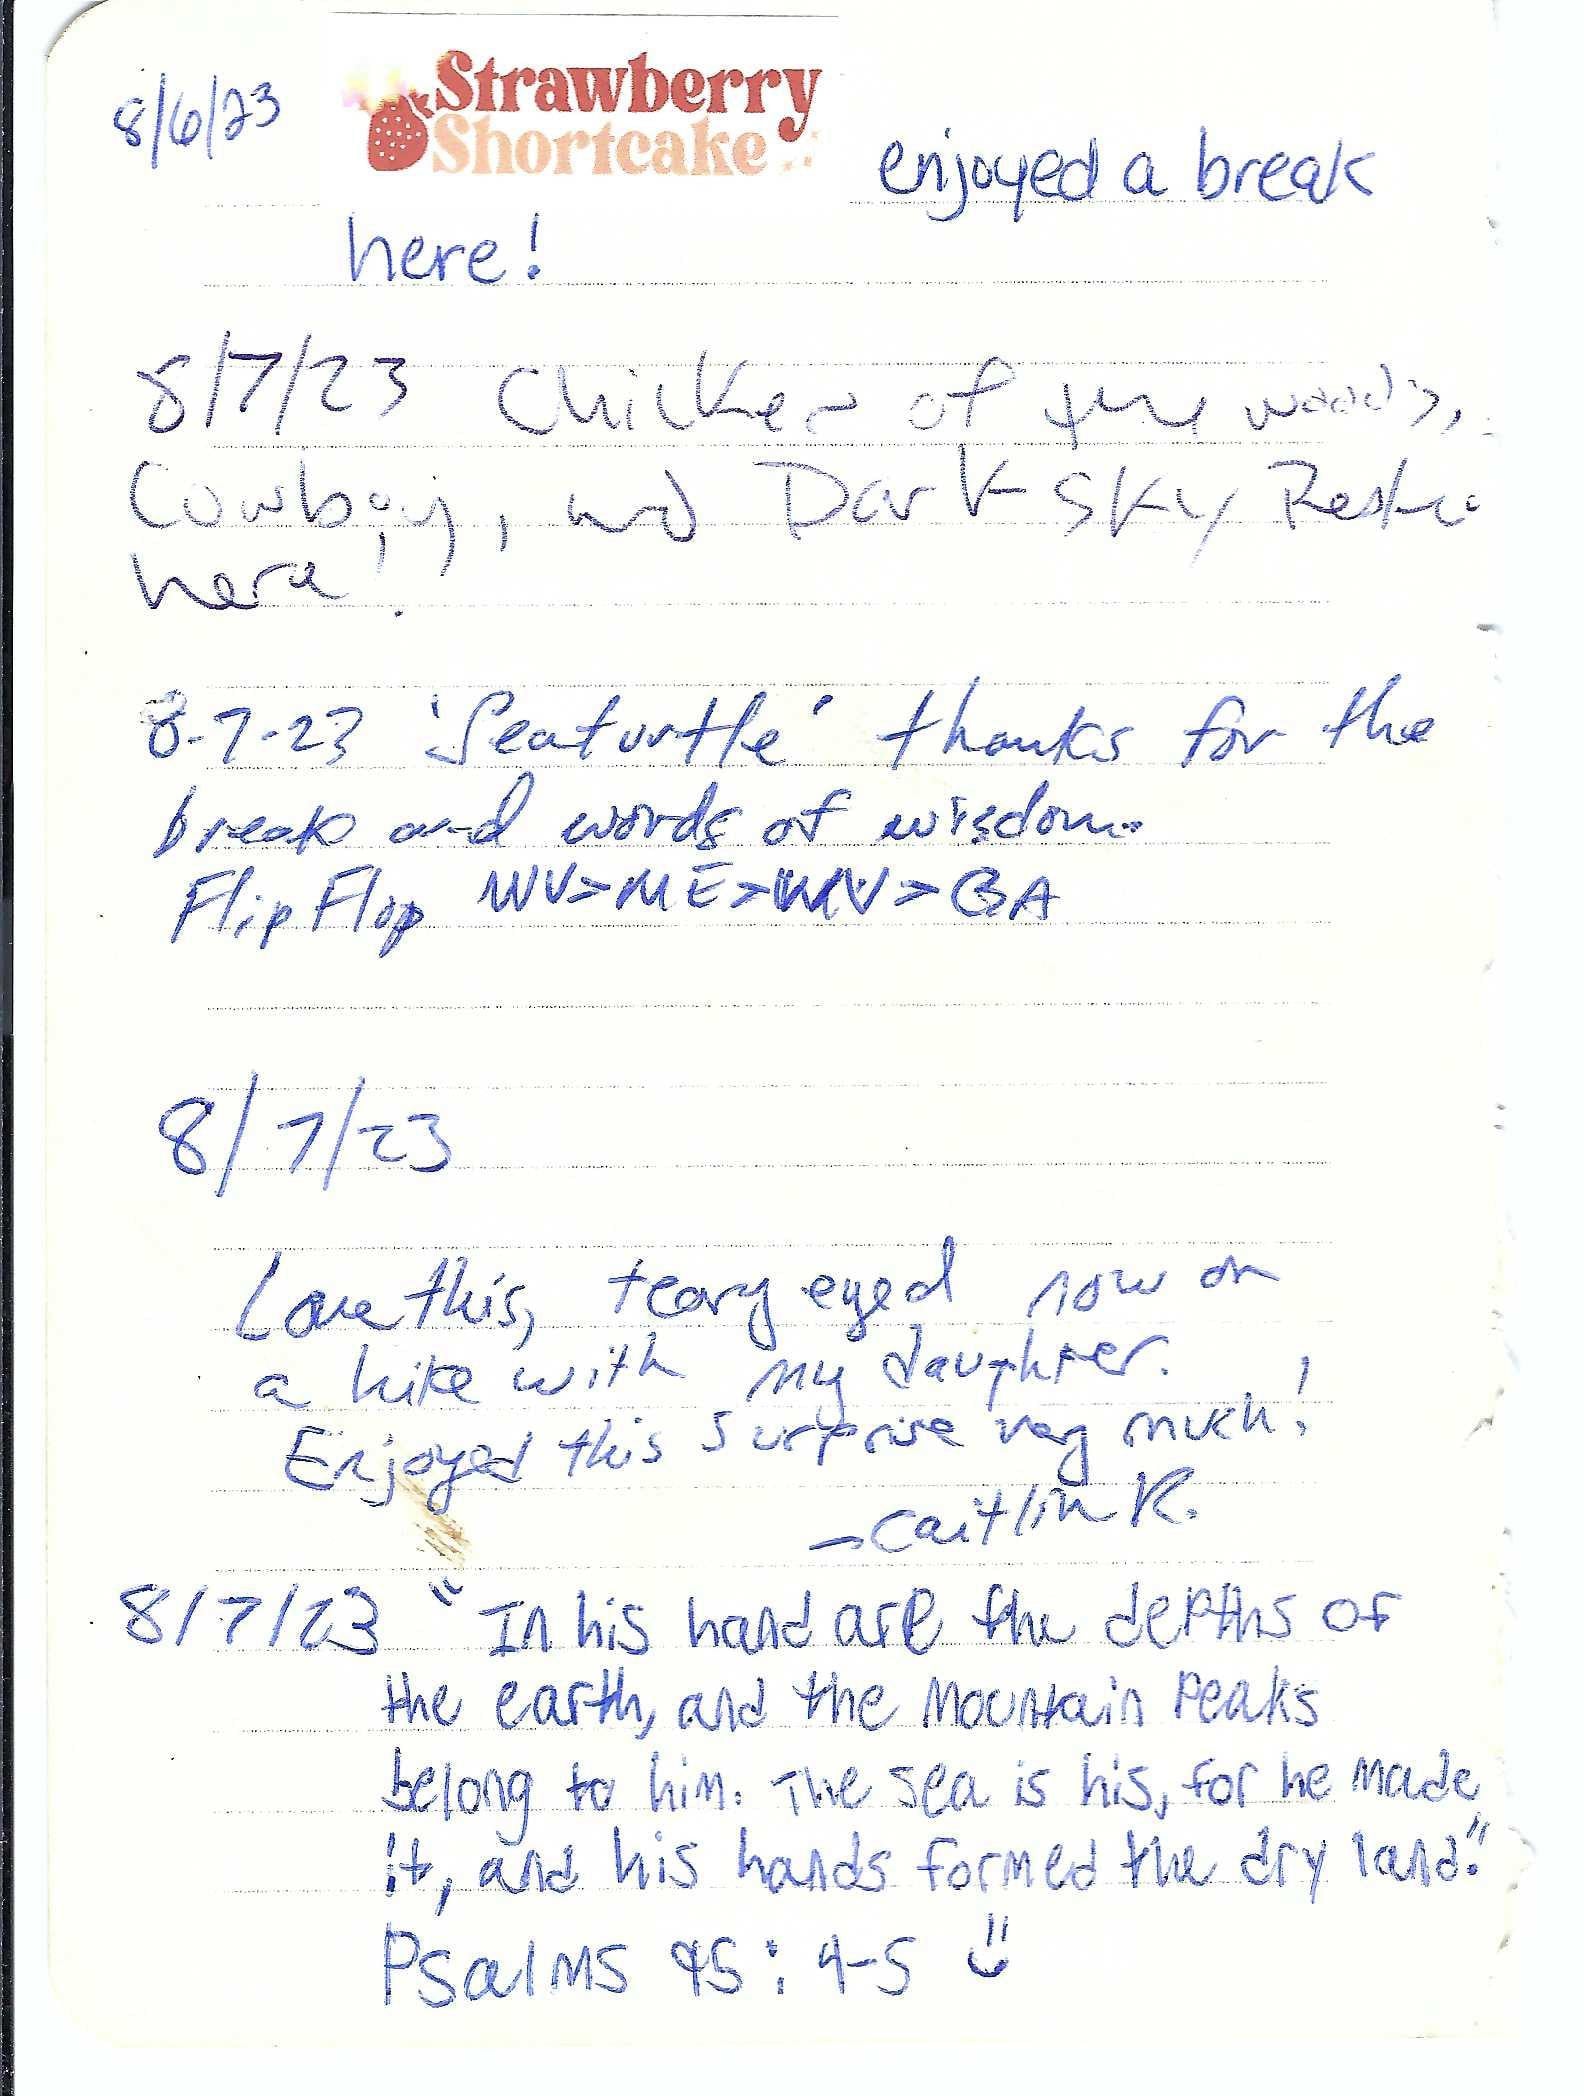 8/6/23 Strawberry
Shortcake
enjoyed a break
here!
8/7/23 Chicken of the woods,
Cowboy, and Dark Sky
here!
8-7-23 'Seaturtle' thanks for the
break and words of wisdom.
Flip Flop WV>ME>WV>GA
8/7/23
Love this, teary eyed now on
a hike with my daughter.
Enjoyed this surprise very much!
- Caitlin R.
8/7/23 "In his hand are the depths of
the earth, and the mountain peaks
belong to him. The sea is his, for he made
it, and his hands formed the dry land."
Psalms 95:4-5